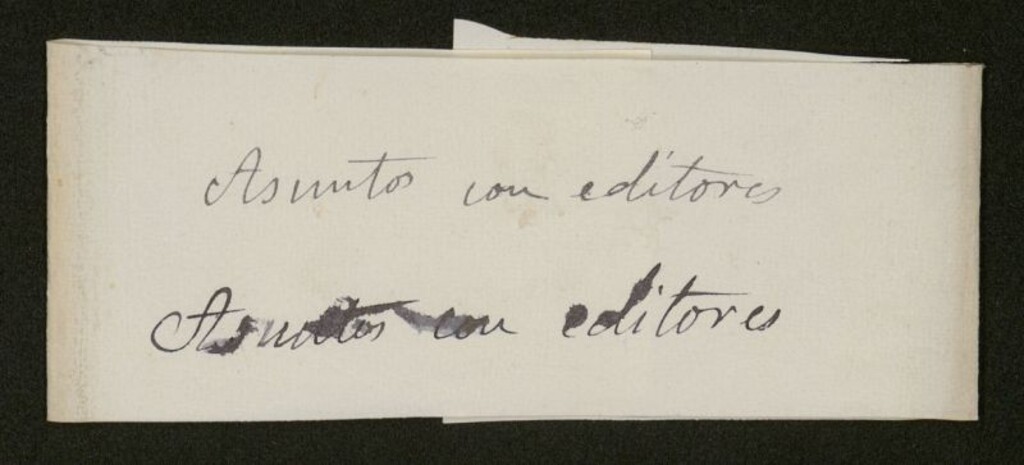 Asuntos con editores
Asuntos con editores